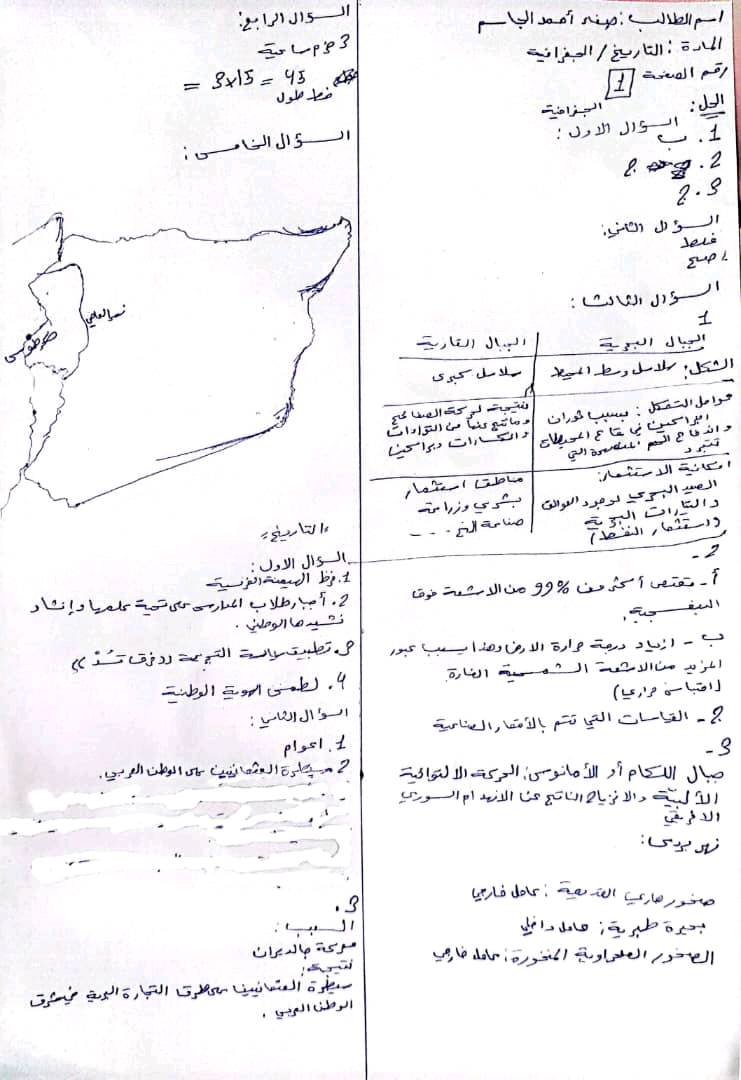 اسم الطالب: صفر أحمد الجاسم
المادة: التاريخ / الجغرافية
رقم الصفحة 1
الحل: الجغرافية
السؤال الاول:
1. ب
2. ج
3. ج
السؤال الثاني:
غلط
صح
السؤال الثالث:
1
الجبال البحرية الجبال القارية
الشكل: سلاسل وسط المحيط سلاسل كبرى
عوامل التشكل: بسبب ثوران البراكين في قاع المحيطات
واندفاع المنصهرة التي تتبرد
نتيجة لحركة الصفائح
وما نتج عنها من التواءات
وانكسارات وبراكين
امكانية الاستثمار:
الصيد البحري لوجود العوالق
والتيارات البحرية
(استثمار النفط)
مناطق استثمار
بشري وزراعة
صناعة الخ ....
2-
أ- تمتص أكثر من 99% من الاشعة فوق
البنفسجية.
ب- ازدياد درجة حرارة الارض وهذا يسبب عبور
المزيد من الاشعة الشمسية الضارة
(احتباس حراري)
ج- القياسات التي تتم بالأقمار الصناعية
3-
جبال اللكام أو الأمانوس: الحركة الالتوائية
الألبية والانزياح الناتج عن الانهدام السوري
الافريقي
نهر بردى:
صخور القديمة: عامل خارجي
بحيرة طبرية: عامل داخلي
الصخور الصحراوية المنخورة: عامل خارجي
السؤال الرابع:
3 حزم ساعية
= 3x15 = 45
خط طول
السؤال الخامس:
طرطوس
«التاريخ»
السؤال الاول:
1. فرض الهيمنة الفرنسية
2. أجبار طلاب المدارس على تحية علمها وإنشاد
نشيدها الوطني.
3. تطبيق سياسة التجزئة ((فرق تسُدْ))
4. لطمس الهوية الوطنية
السؤال الثاني:
1. اعوام
2. سيطرة العثمانيين على الوطن العربي.
3.
السبب:
معركة جالديران
نتيجة:
سيطرة العثمانيين على طرق التجارة البرية في شرق
الوطن العربي.